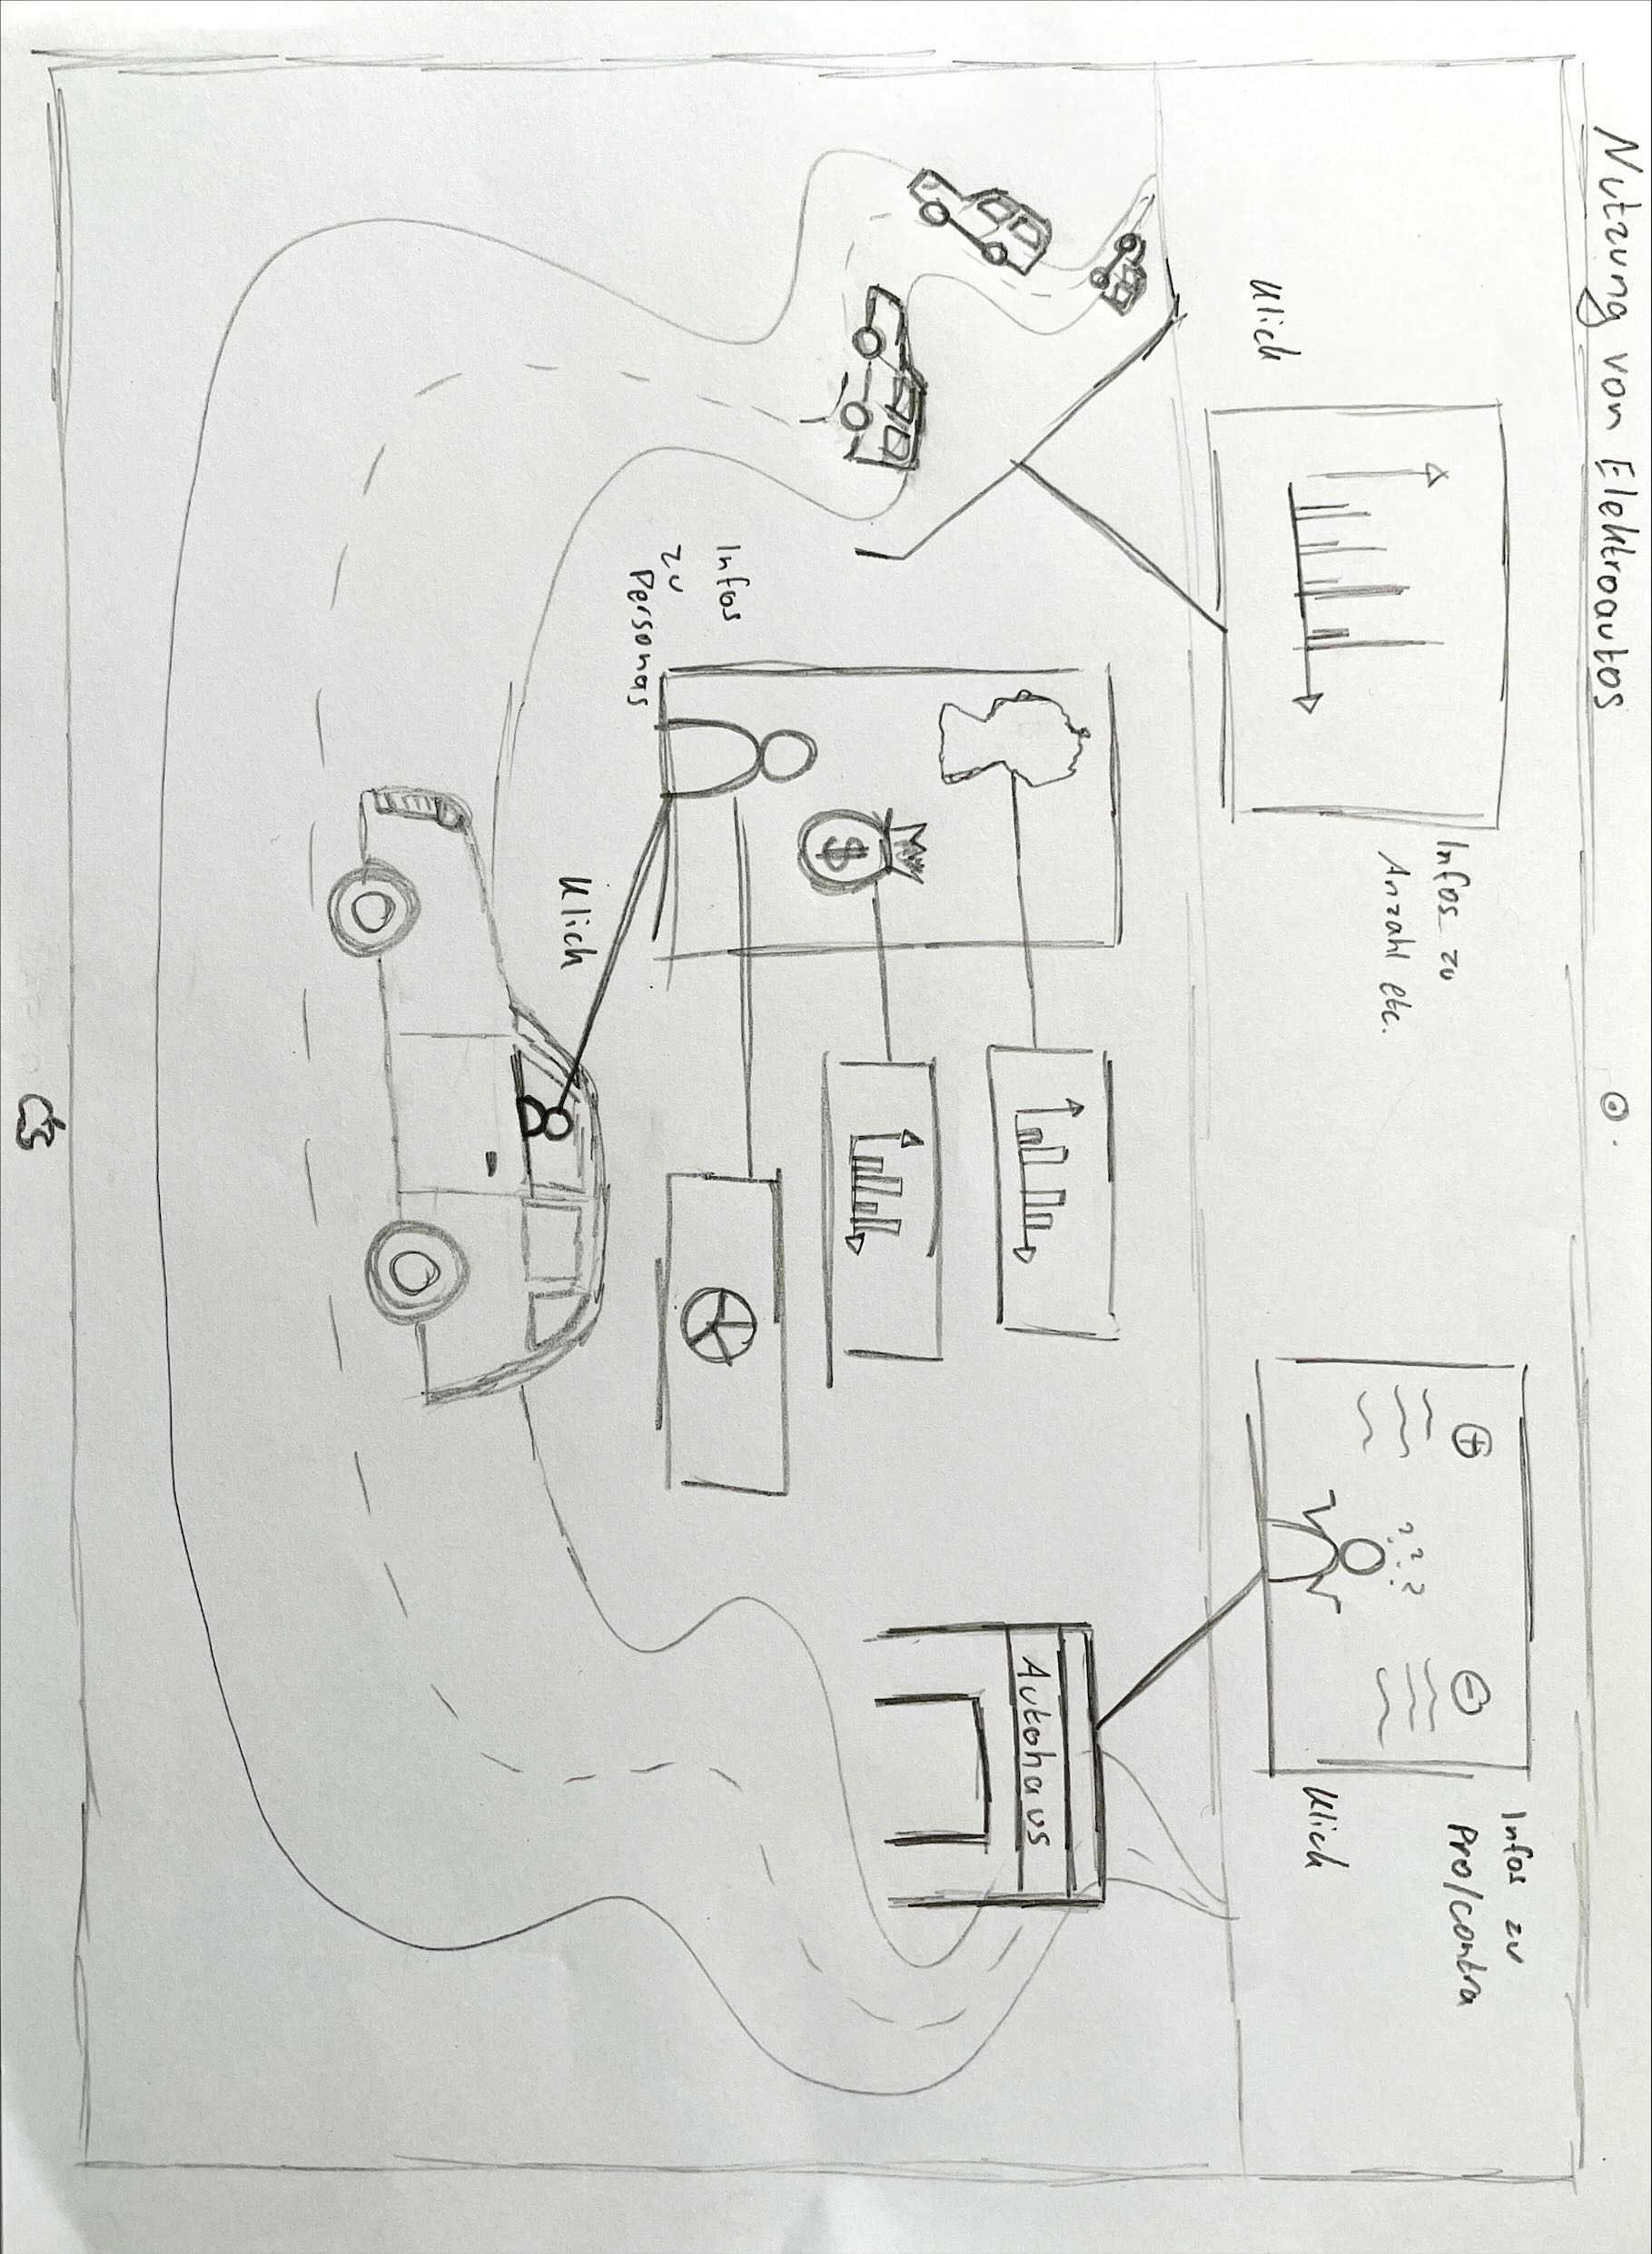 Nutzung von Elektroautos
Infos zu
Anzahl etc.
Klick
Infos zu
Pro/contra
???
Klick
Autohaus
$
Infos
zu
Personas
Klick